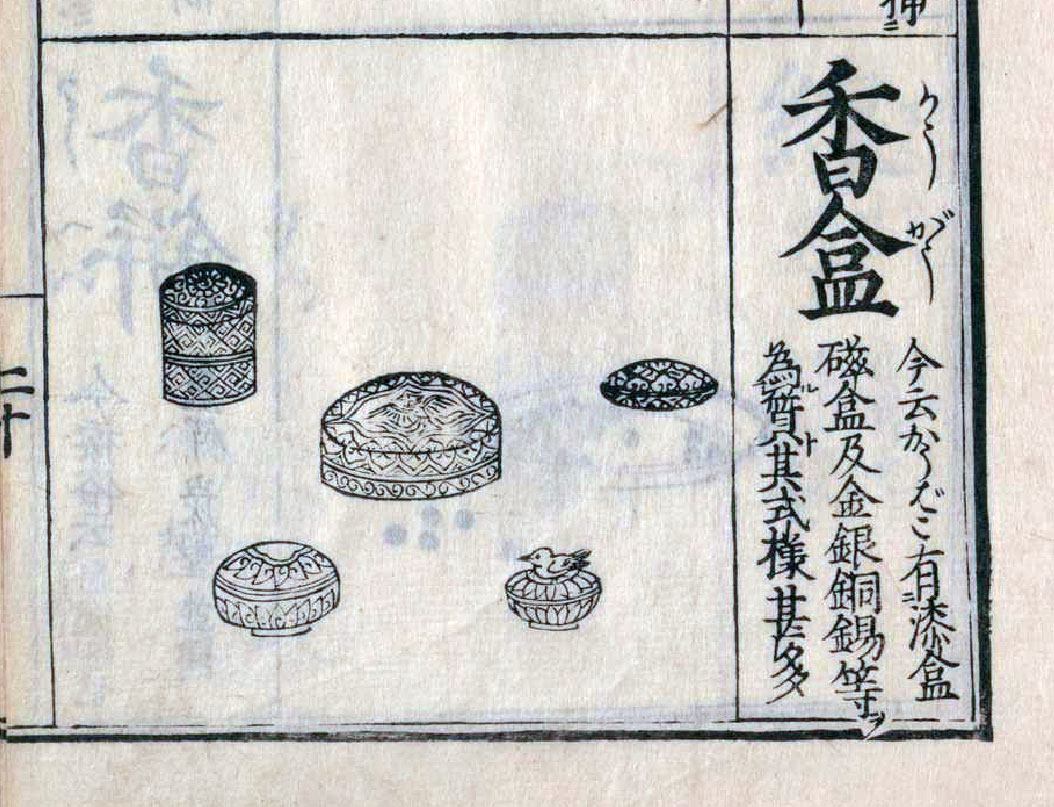 香盒
かうがう
今云かうばこ有漆盒
磁盒及金銀銅錫等ヲ
為ル質ト其式様甚多
二十